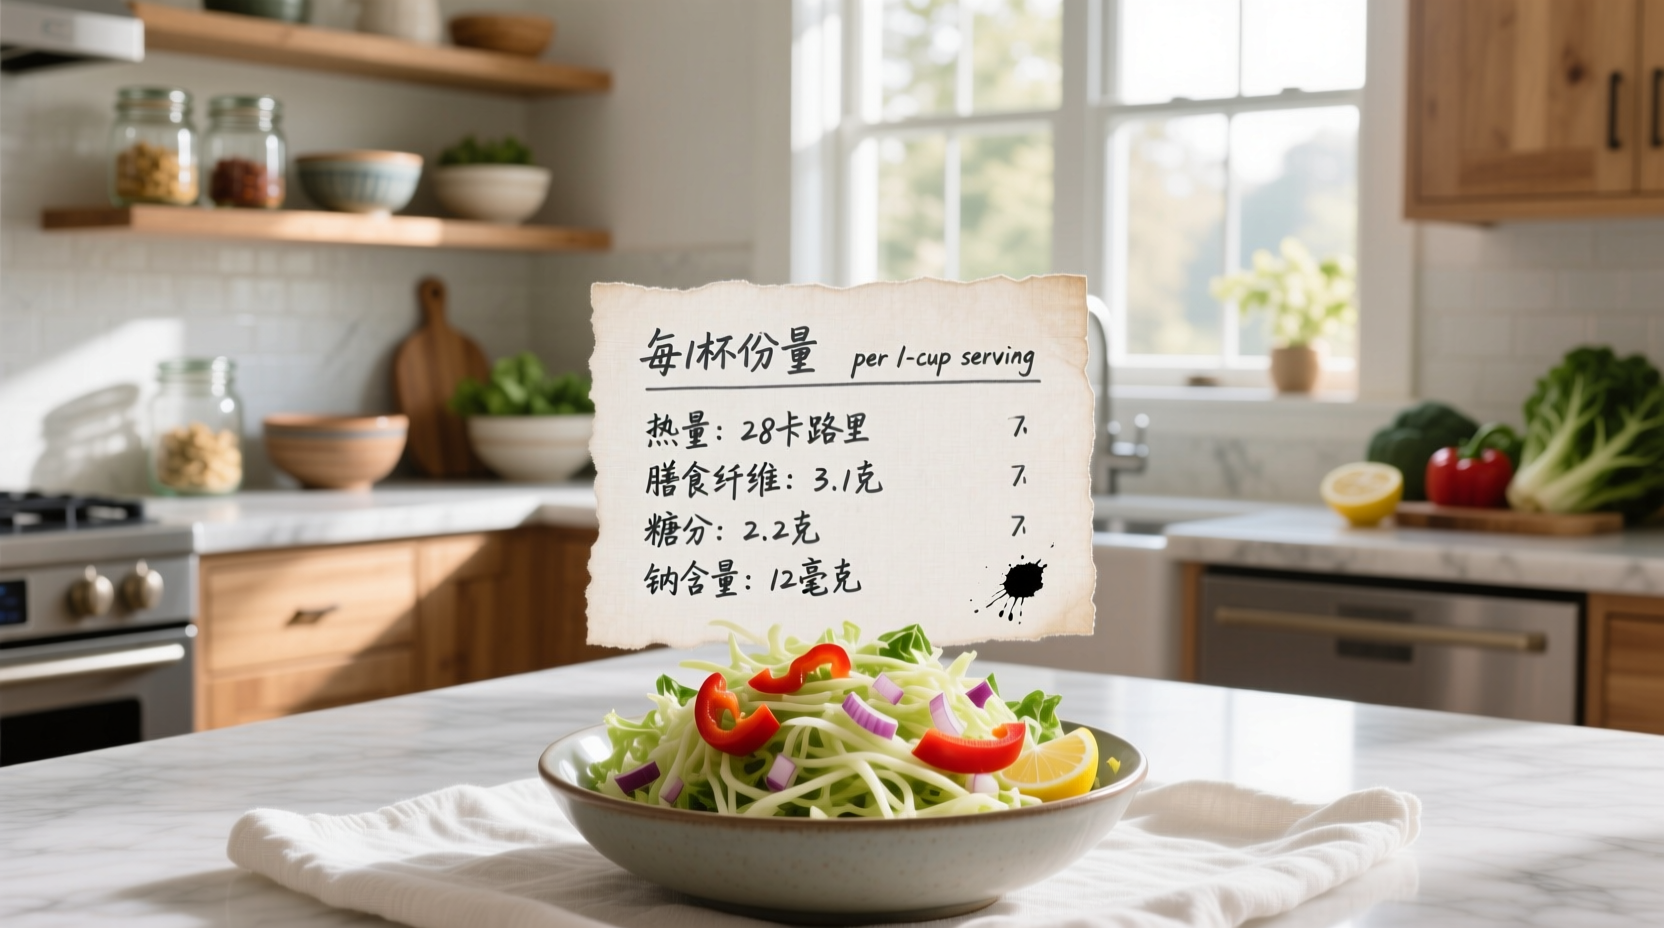 每1杯份量 per 1-cup serving
热量：28卡路里
膳食纤维：3.1克
糖分：2.2克
钠含量：12毫克